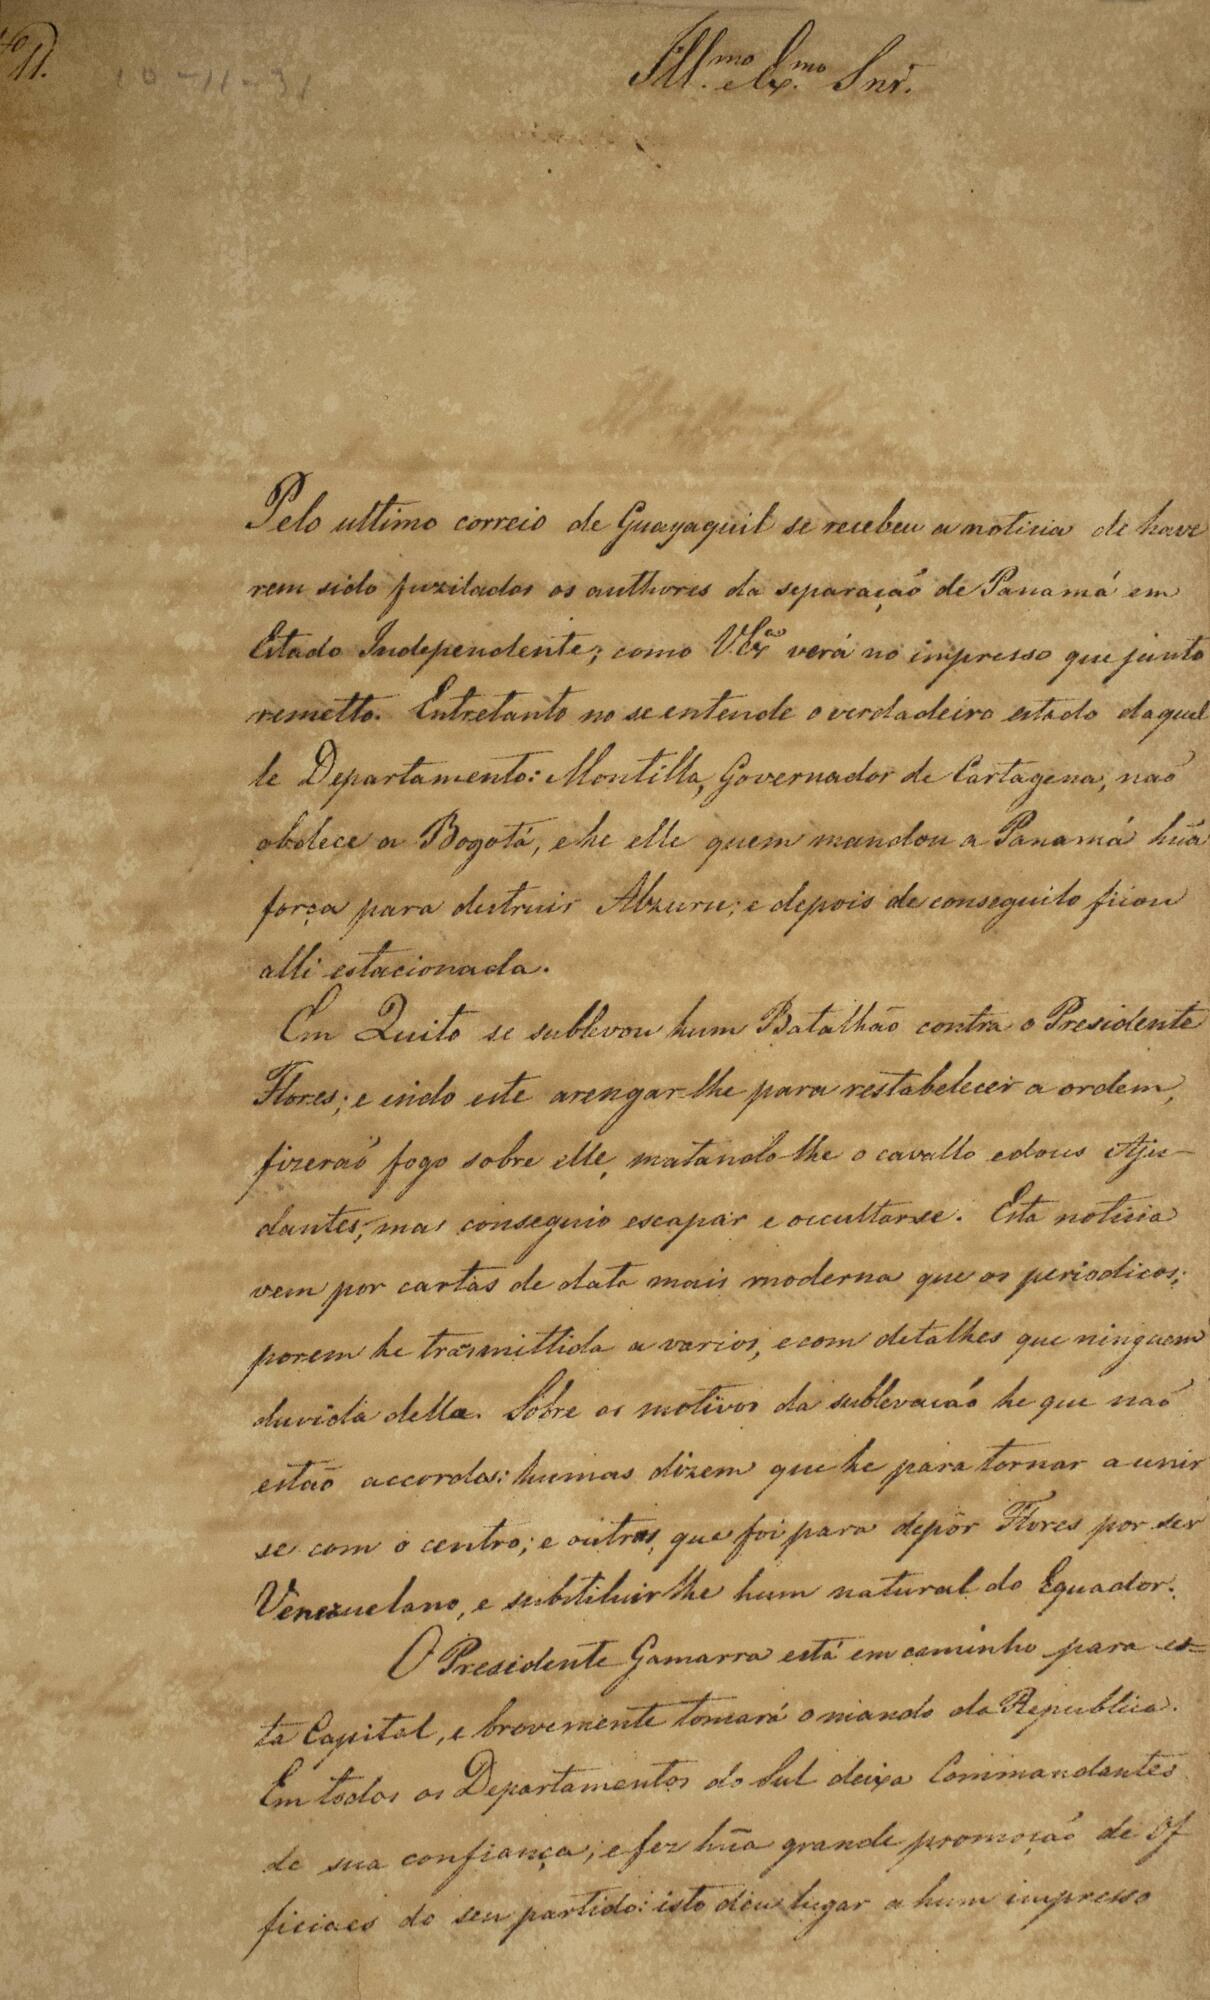 N.º 11.
10-11-31
Ill.mo e Ex.mo Snr.
Pelo ultimo correio de Guayaquil se recebeu a noticia de have
rem sido fuzilados os authores da separação de Panamá em
Estado Independente; como V.Exª verá no impresso que junto
remetto. Entretanto no se entende o verdadeiro estado daquel
le Departamento: Montilla, Governador de Cartagena, naõ
obdece a Bogotá, e he elle quem mandou a Panamá hũa
força para destruir Alzuru; e depois de conseguilo ficou
alli estacionada.
Em Quito se sublevou hum Batalhão contra o Presidente
Flores; e indo este arengar-lhe para restabelecer a ordem,
fizeraõ fogo sobre elle, matando-lhe o cavallo e dous Aju-
dantes; mas conseguio escapar e occultarse. Esta noticia
vem por cartas de data mais moderna que os periodicos;
porem he trasmittida a varios, e com detalhes que ninguem
duvida della. Sobre os motivos da sublevaçaõ he que naõ
estaõ accordes: humas dizem que he para tornar a unir
se com o centro; e outras, que foi para depôr Flores por ser
Venezuelano, e substituir lhe hum natural do Equador.
O Presidente Gamarra está em caminho para es=
ta Capital, e brevemente tomará o mando da Republica.
Em todos os Departamentos do Sul deixa Commandantes
de sua confiança; e fez hũa grande promoçaõ de Of
ficiaes do seu partido: isto deu lugar a hum impresso